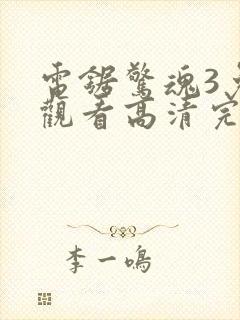 電鋸驚魂3
觀看高清完
李一鳴